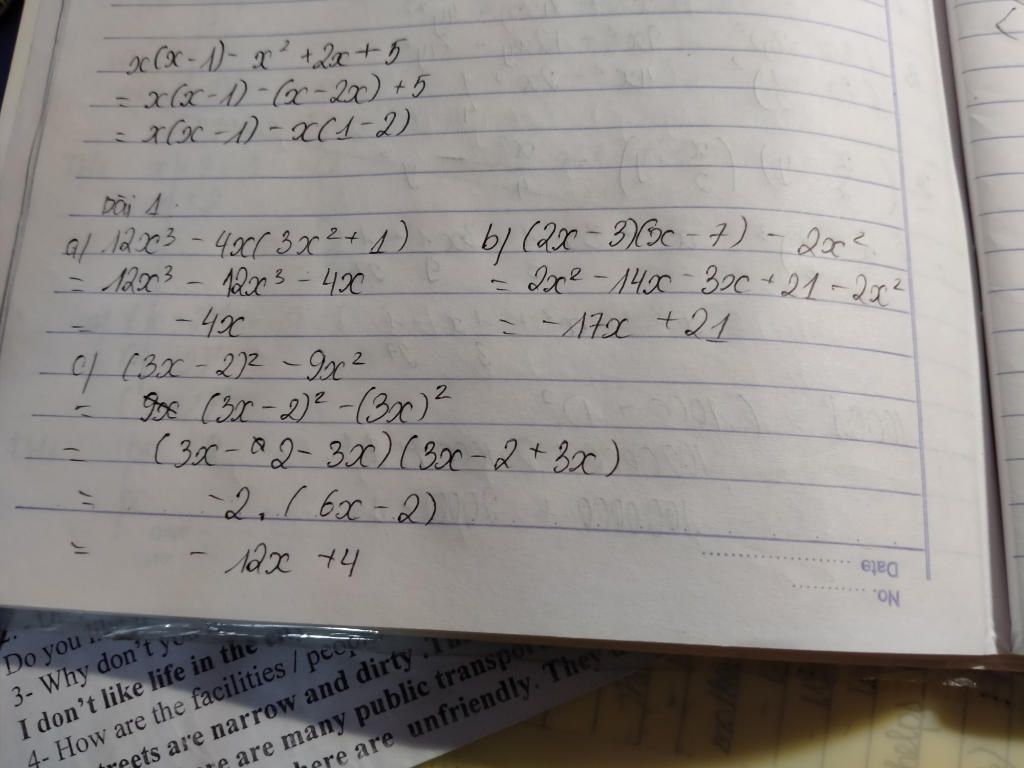 x(x-1) - x² + 2x + 5
= x(x-1) - (x-2x) + 5
= x(x-1) - x(1-2)
Bài 1.
a) 12x³ - 4x(3x² + 1)
= 12x³ - 12x³ - 4x
= -4x
b) (2x - 3)(x - 7) - 2x²
= 2x² - 14x - 3x + 21 - 2x²
= -17x + 21
c) (3x - 2)² - 9x²
= (3x - 2)² - (3x)²
= (3x - 2 - 3x)(3x - 2 + 3x)
= -2.(6x - 2)
= -12x + 4
Date
No.
Do you
3- Why don't
I don't like life in the
4- How are the facilities /
streets are narrow and dirty
are many public
here are unfriendly. They